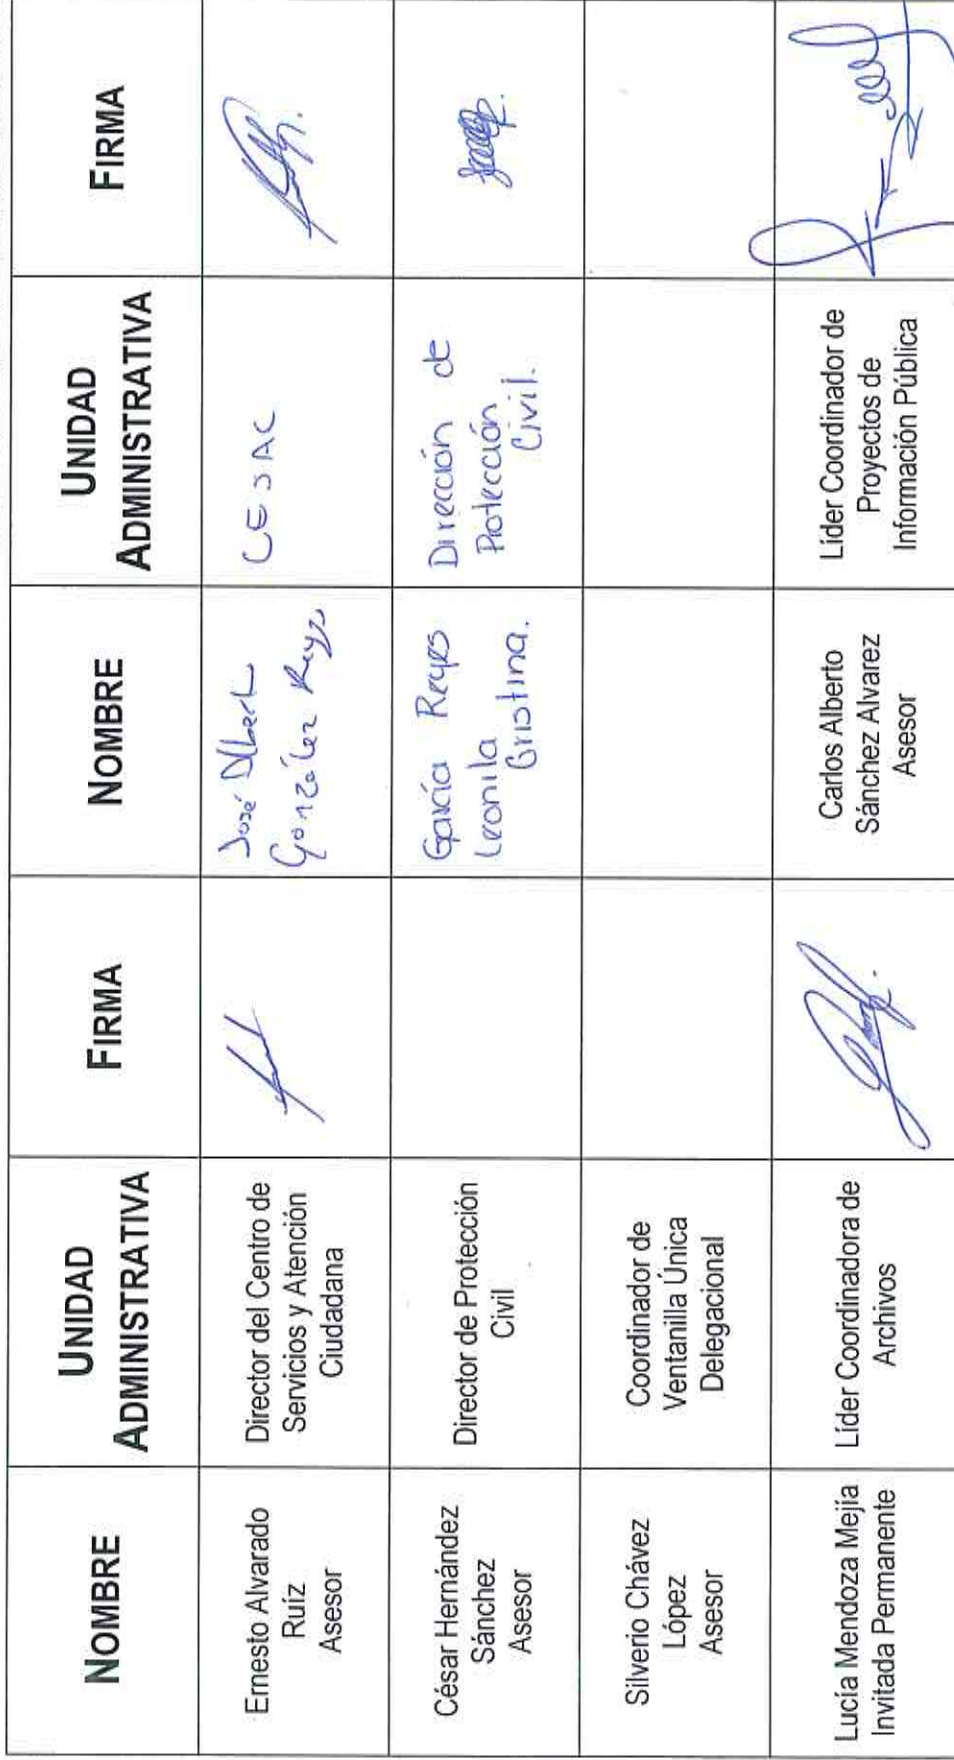 NOMBRE
UNIDAD
ADMINISTRATIVA
FIRMA
NOMBRE
UNIDAD
ADMINISTRATIVA
FIRMA
Ernesto Alvarado
Ruíz
Asesor
Director del Centro de
Servicios y Atención
Ciudadana
José Albert
González Reyes
CESAC
César Hernández
Sánchez
Asesor
Director de Protección
Civil
García Reyes
Leonila
Cristina.
Dirección de
Protección
Civil.
Silverio Chávez
López
Asesor
Coordinador de
Ventanilla Única
Delegacional
Lucía Mendoza Mejía
Invitada Permanente
Líder Coordinadora de
Archivos
Carlos Alberto
Sánchez Alvarez
Asesor
Líder Coordinador de
Proyectos de
Información Pública